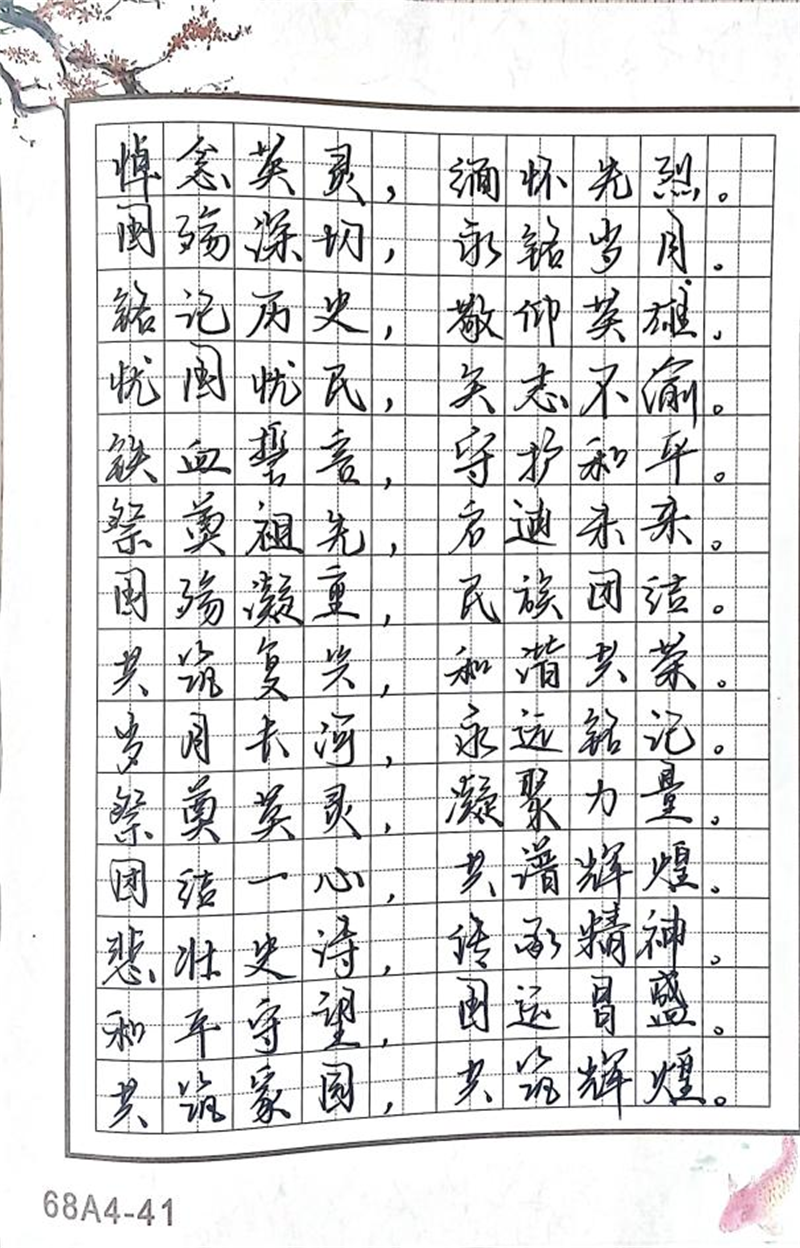 悼念英灵，缅怀先烈。
国殇深切，永铭岁月。
铭记历史，敬仰英雄。
忧国忧民，矢志不渝。
铁血誓言，守护和平。
祭奠祖先，启迪未来。
国殇凝重，民族团结。
共筑复兴，和谐共荣。
岁月长河，永远铭记。
祭奠英灵，凝聚力量。
团结一心，共谱辉煌。
悲壮史诗，传承精神。
和平守望，国运昌盛。
共筑家园，共筑辉煌。
68A4-41